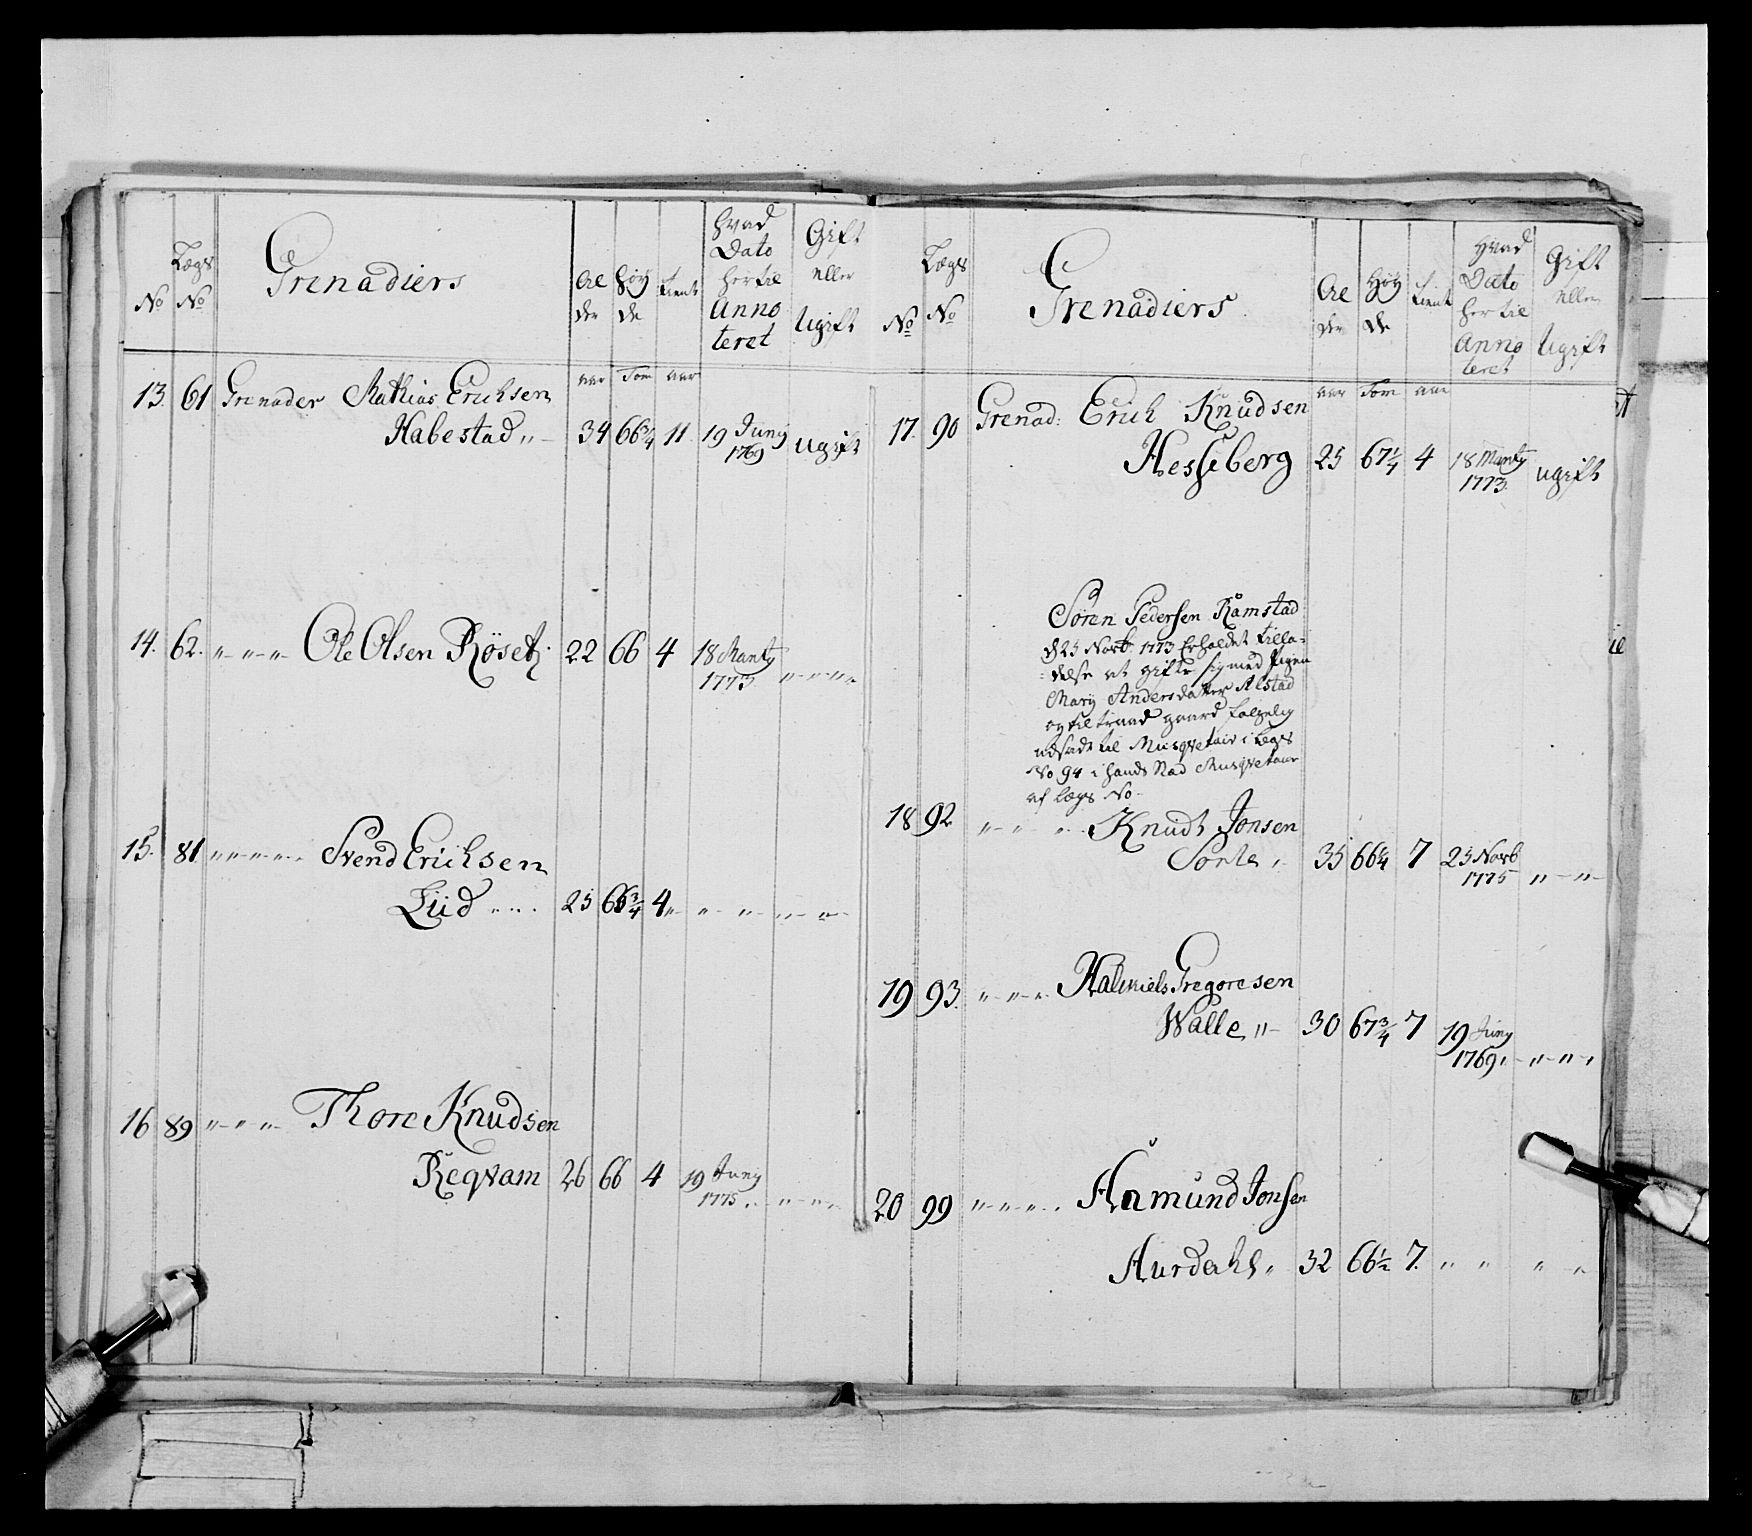 No
Lægs
No
Grenadiers
Al
der
høy
de
tient
hvad
Dato
hertil
Anno
teret
Gift
eller
Ugift
aar Tom aar
13. 61 Grenader Mathias Erichsen
Habestad „ 34 66 3/4 11. 19 Junÿ 1769 ugift
14. 62. „ „ „ Ole Olsen Röset 22 66 4 18 Martÿ 1773 „ „ „
15. 81 „ „ „ „ Svend Erichsen
Liid „ „ 25 66 3/4 4 „ „ „ „ „
16 89 „ „ „ Thore Knudsen
Reqvam 26 66 4 19 Junÿ 1775 „ „ „
No
Lægs
No
Grenadiers
Al
der
Høy
de
tient
hvad
Dato
hertil
Anno
teret
Gift
eller
Ugift
aar Tom aar
17. 90 Grenad: Erich Knudsen
Hesseberg 25 67 1/4 4 18 Martÿ 1773. ugift
Sören Pedersen Ramstad
d 25 Novb 1773 Erholdet tilla-
delse at gifte sig med Pigen
Mary Andersdatter Alstad
og tiltraad gaard følgelig
udsadt til Musqvetair i Legs
No 94 i hands Stad Musqvetair
af Lægs No
18 92 „ „ „ Knudt Jonsen
Sorte „ 35 66 1/4 7 25 Novb 1775 „ „
19 93. „ „ „ Gregoresen
Walle „ 30 67 3/4 7 19 Junÿ 1769 „ „ „ „
20 99 „ „ „ „ Aamund Jonsen
Aurdahl „ 32 66 1/2 7. „ „ „ „